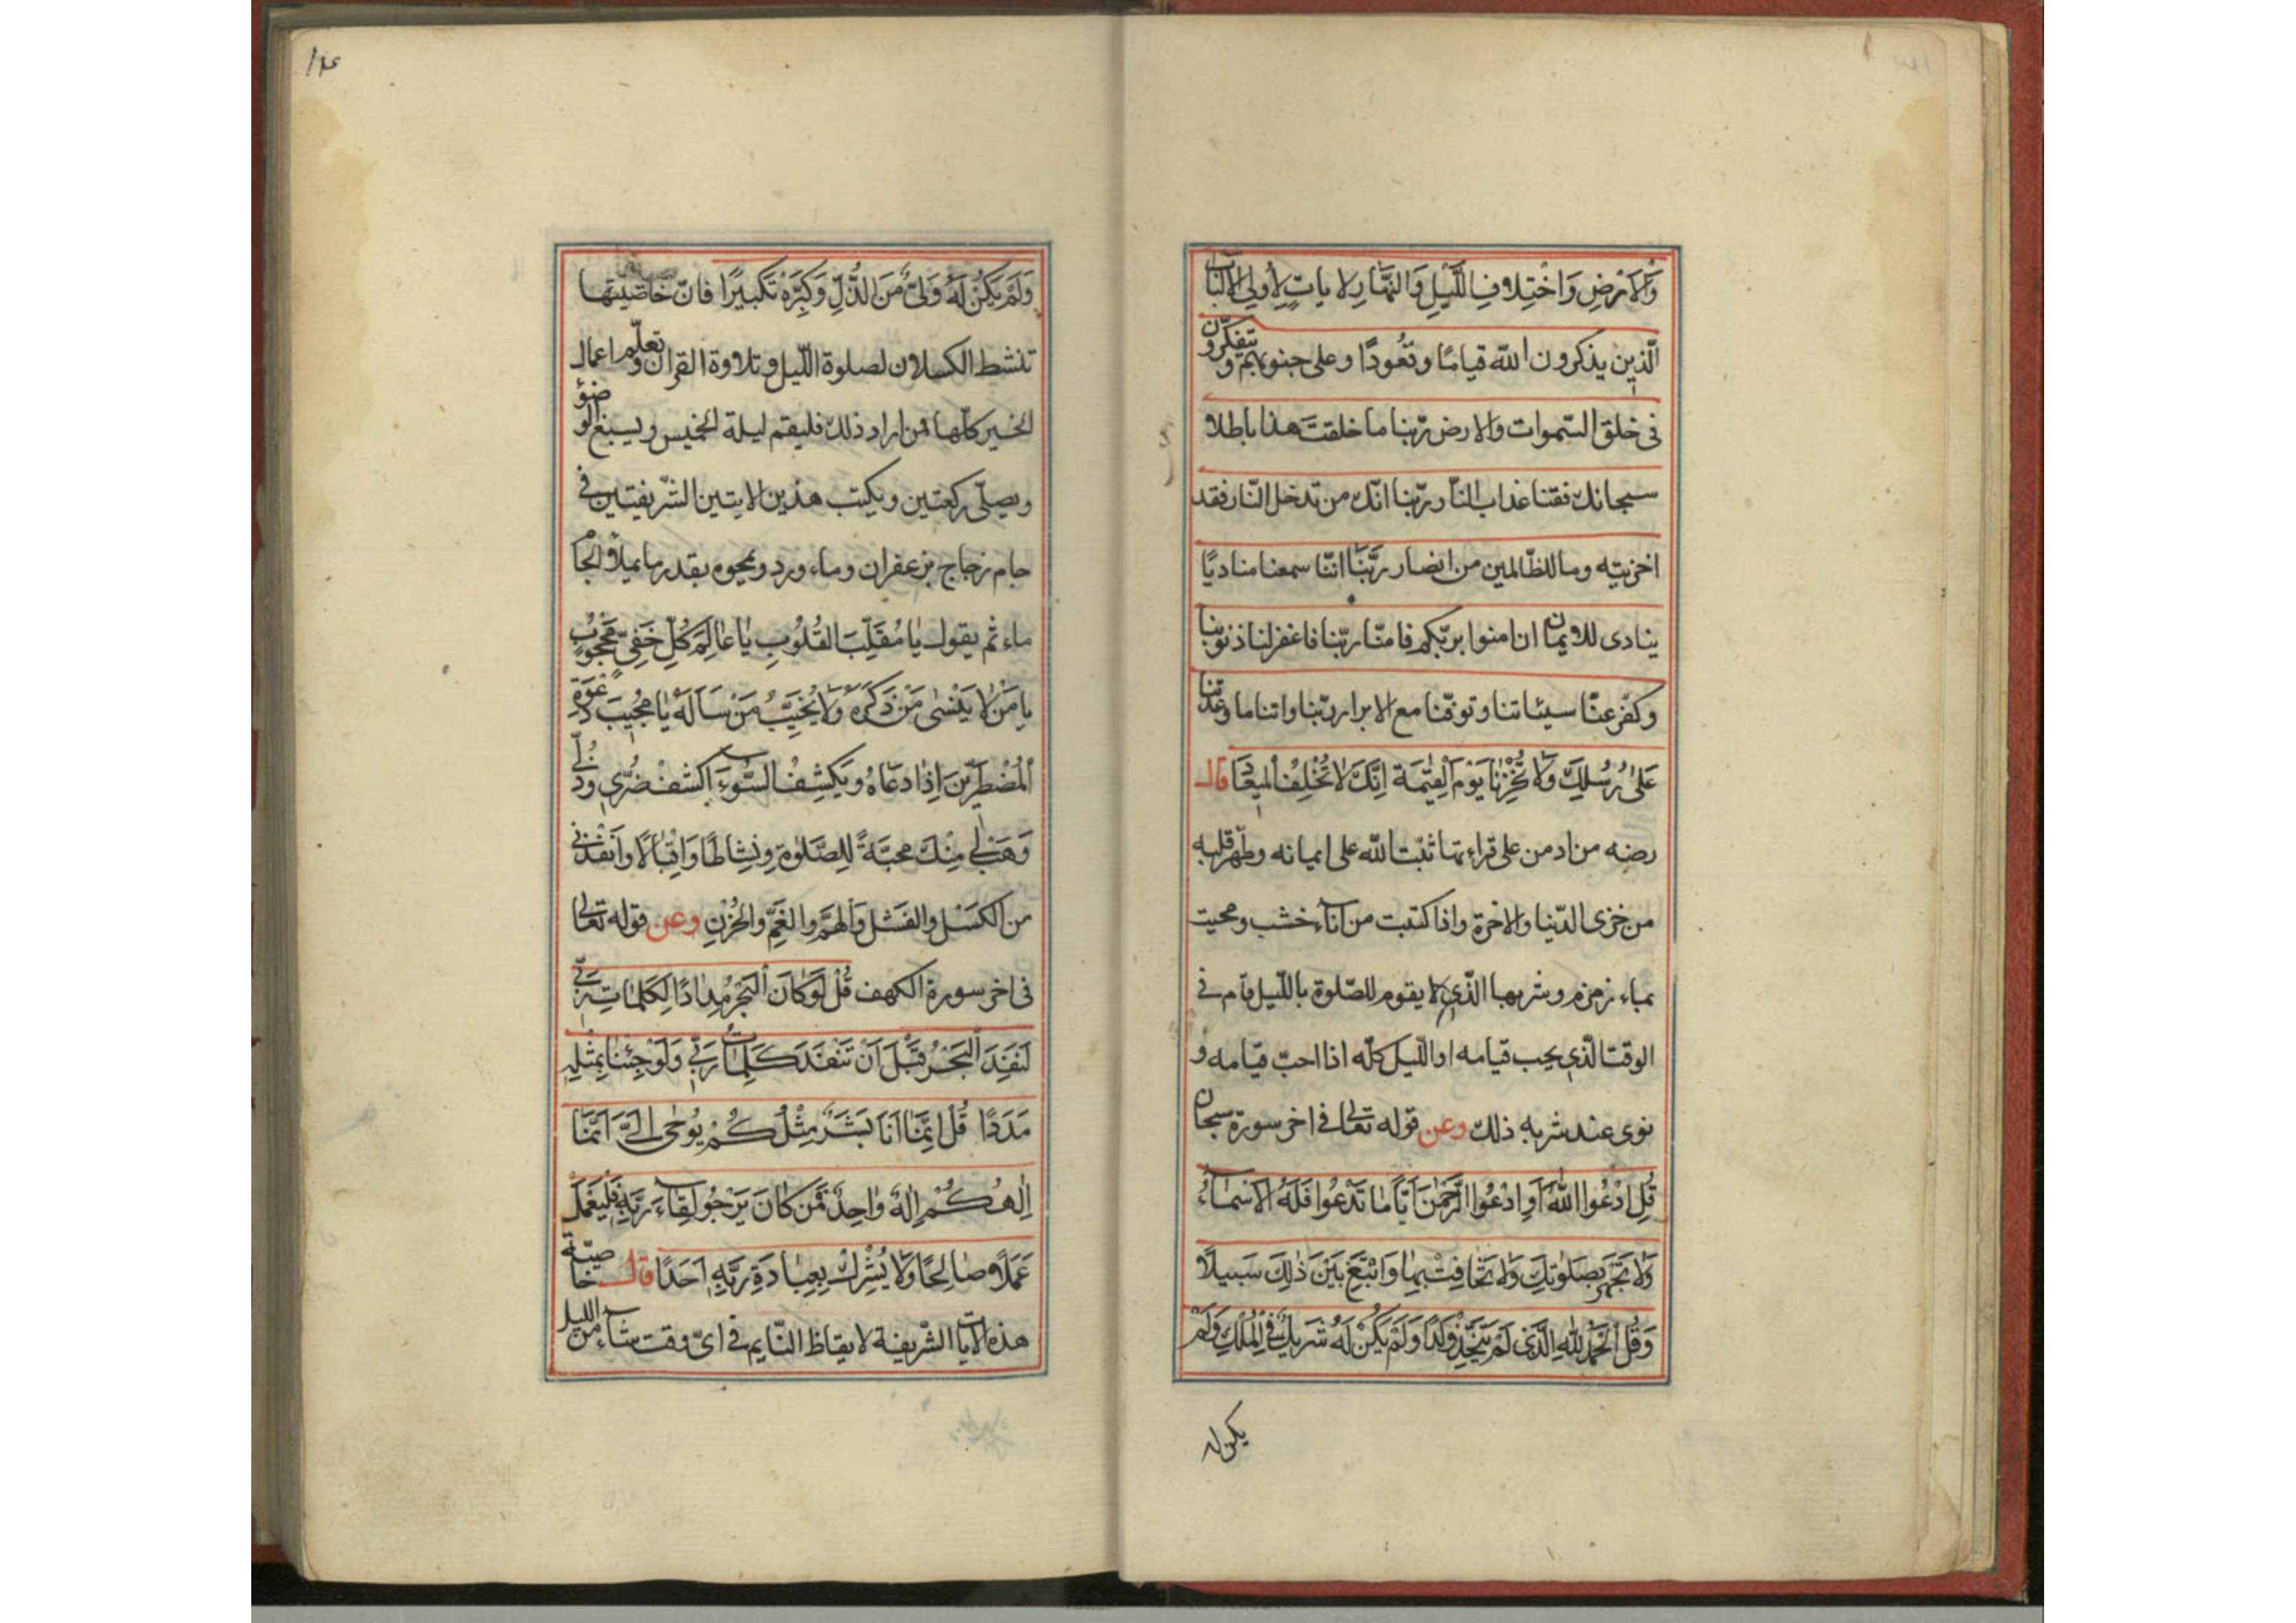 وَالْاَرْضِ وَاخْتِلافِ اللَّيلِ وَالنَّهَارِ لاياتٍ لِأُولِي الْاَلْبَابِ
الّذين يذكرون الله قيامًا وقُعُودًا وعلى جنوبهم ويتفكّرون
فى خلق السّموات والارض ربّنا ما خلقتَ هذا باطلا
سبحانك فقنا عذاب النّار ربّنا انّك من تدخل النّار فقد
اخزيته وما للظّالمين من انصار ربَّنَا انّنا سمعنا مناديًا
ينادى للايمان ان امنوا بربّكم فامنّا ربّنا فاغفرلنا ذنوبنا
وكفّر عنّا سيئاتنا وتوفّنا مع الابرار ربّنا واتنا ما وعدتنا
عَلىٰ رُسُلِكَ وَلَا تُخْزِنَا يَوْمَ الْقِيٰمَة اِنَّكَ لَا تُخْلِفُ الْمِيعَادَ قال
رضه من ادمن على قراءتها ثبّت الله على ايمانه وطهّر قلبه
من خزى الدّنيا والاخرة واذا كتبت من اناء خشب ومحيت
بماء زمزم وشربها الّذي لا يقوم للصّلوة باللّيل قام فى
الوقت الّذي يحب قيامه او اللّيل كلّه اذا احبّ قيامه و
نوى عند شربه ذلك وعن قوله تعالى فى اخر سورة سبحان
قُلِ ادْعُوا اللهَ اَوِ ادْعُوا الرَّحْمٰنَ اَيًّا مَا تَدْعُوا فَلَهُ الْاَسْمَاءُ
وَلَا تَجْهَرْ بِصَلوٰتِكَ وَلَا تُخَافِتْ بِهَا وَابْتَغِ بَيْنَ ذٰلِكَ سَبيلًا
وَقُلِ الْحَمْدُ لِلّٰهِ الَّذى لَمْ يَتَّخِذْ وَلَدًا وَلَمْ يَكُنْ لَهُ شَريكٌ فِى الْمُلْكِ وَلَمْ
يكن له
١٢٤
وَلَمْ يَكُنْ لَهُ وَلِىٌّ مِنَ الذُّلِّ وَكَبِّرْهُ تَكْبيرًا فانّ خاصّيتها
تنشط الكسلان لصلوة اللّيل وتلاوة القرآن وتعلّم اعمال
الخير كلّها فمن اراد ذلك فليقم ليلة الخميس ويسبغ الوضؤ
ويصلّى ركعتين ويكتب هذين الايتين الشّريفتين فى
جام زجاج بزعفران وماء ورد ويمحوه بقدر ما يملأ الجام
ماء ثم يقول يَا مُقَلِّبَ القُلُوبِ يَا عَالِمَ كُلِّ خَفِىٍّ مَحْجُوبٍ
يَا مَنْ لَا يَنْسٰى مَنْ ذَكَرَهُ وَلَا يُخَيِّبُ مَنْ سَاَلَهُ يَا مُجِيبَ دَعْوَةِ
الْمُضْطَرِّينَ اِذَا دَعَاهُ وَيَكْشِفُ السُّوءَ اِكْشِفْ ضُرّى وَذُلّى
وَهَبْ لى مِنْكَ مَحَبَّةً لِلصَّلوٰةِ وَنَشَاطًا وَاِقْبَالًا وَاَنْقِذْنى
من الكَسَلِ والفَشَلِ وَالْهَمِّ والغَمِّ والْحُزْنِ وعن قوله تعالى
فى اخر سورة الكهف قُلْ لَوْ كَانَ الْبَحْرُ مِدَادًا لِكَلِمَاتِ رَبّى
لَنَفِدَ الْبَحْرُ قَبْلَ اَنْ تَنْفَدَ كَلِمَاتُ رَبّى وَلَوْ جِئْنَا بِمِثْلِهِ
مَدَدًا قُلْ اِنَّمَا اَنَا بَشَرٌ مِثْلُكُمْ يُوحٰى اِلَىَّ اَنَّمَا
اِلٰهُكُمْ اِلٰهٌ وَاحِدٌ فَمَنْ كَانَ يَرْجُو لِقَاءَ رَبِّهِ فَلْيَعْمَلْ
عَمَلًا صَالِحًا وَلَا يُشْرِكْ بِعِبَادَةِ رَبِّهِ اَحَدًا قال خاصّية
هذه الايات الشّريفة لايقاظ النّايم فى اىّ وقت شاء من الليل